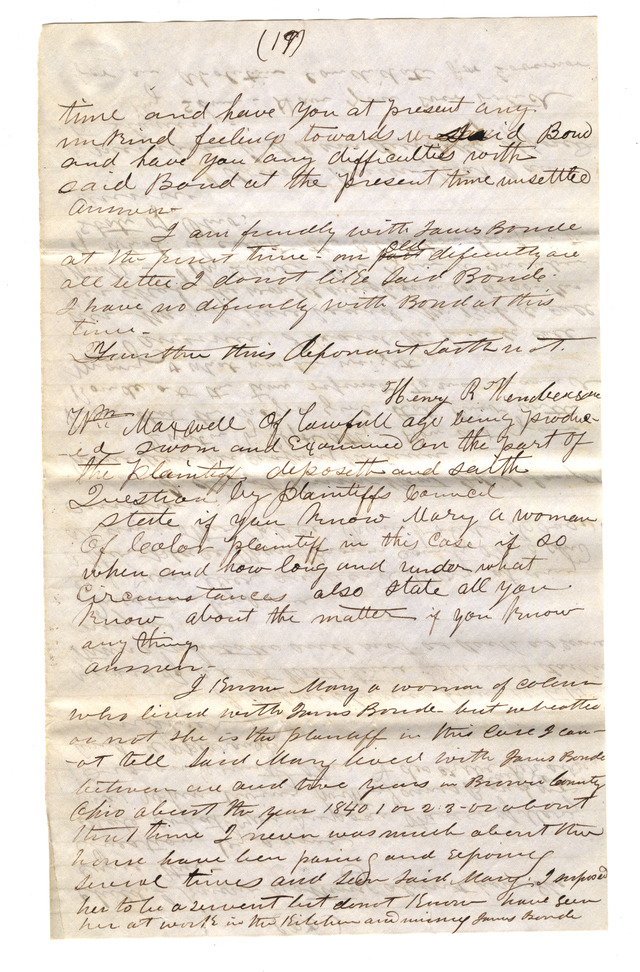 (19)
time and have you at present any
unkind feelings toward said Bond
and have you any difficulties with
said Bond at the present time unsettled
answer-
I am friendly with James Bonde
at the time - our old difficulty are
all I do not like Said Bonde.
I have no difficully with Bond at this
time.-
Further this deponant saith not.
Henry R Henderson
Wm Maxwell of lawfull age being produc-
-ed sworn and Examined on the part of
the plaintiff deposeth and saith
Question by plaintiffs Council
state if you know Mary a woman
of Color plaintiff in this case if so
when and how long and under what
Circumstances also state all you
know about the matter if you know
any thing
answer.-
I Know Mary a woman of colour
who lived with James Bonde but wheather
or not she is the plantiff in this case I can-
-ot tell Said Mary lived with James Bonde
between one and two years in Brown County
Ohio about the year 1840 1 or 2 3 - or about
that time I never was much about the
house have ben pasing and
several times and seen Said Mary. I suposed
her to be a servent but donot Know have seen
her at work in the Kitchen and James Bonde